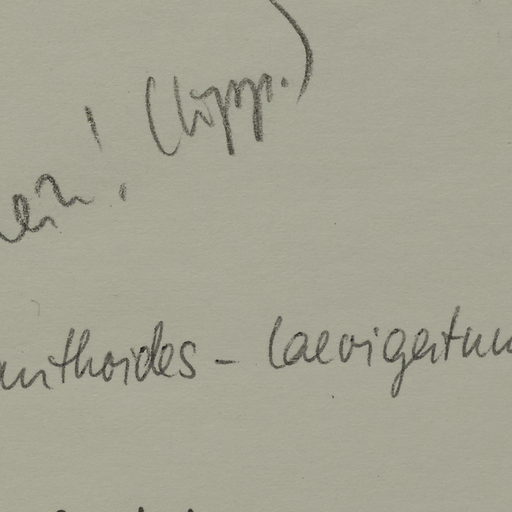 nein! (Lipp.)
anthoides – laevigatum